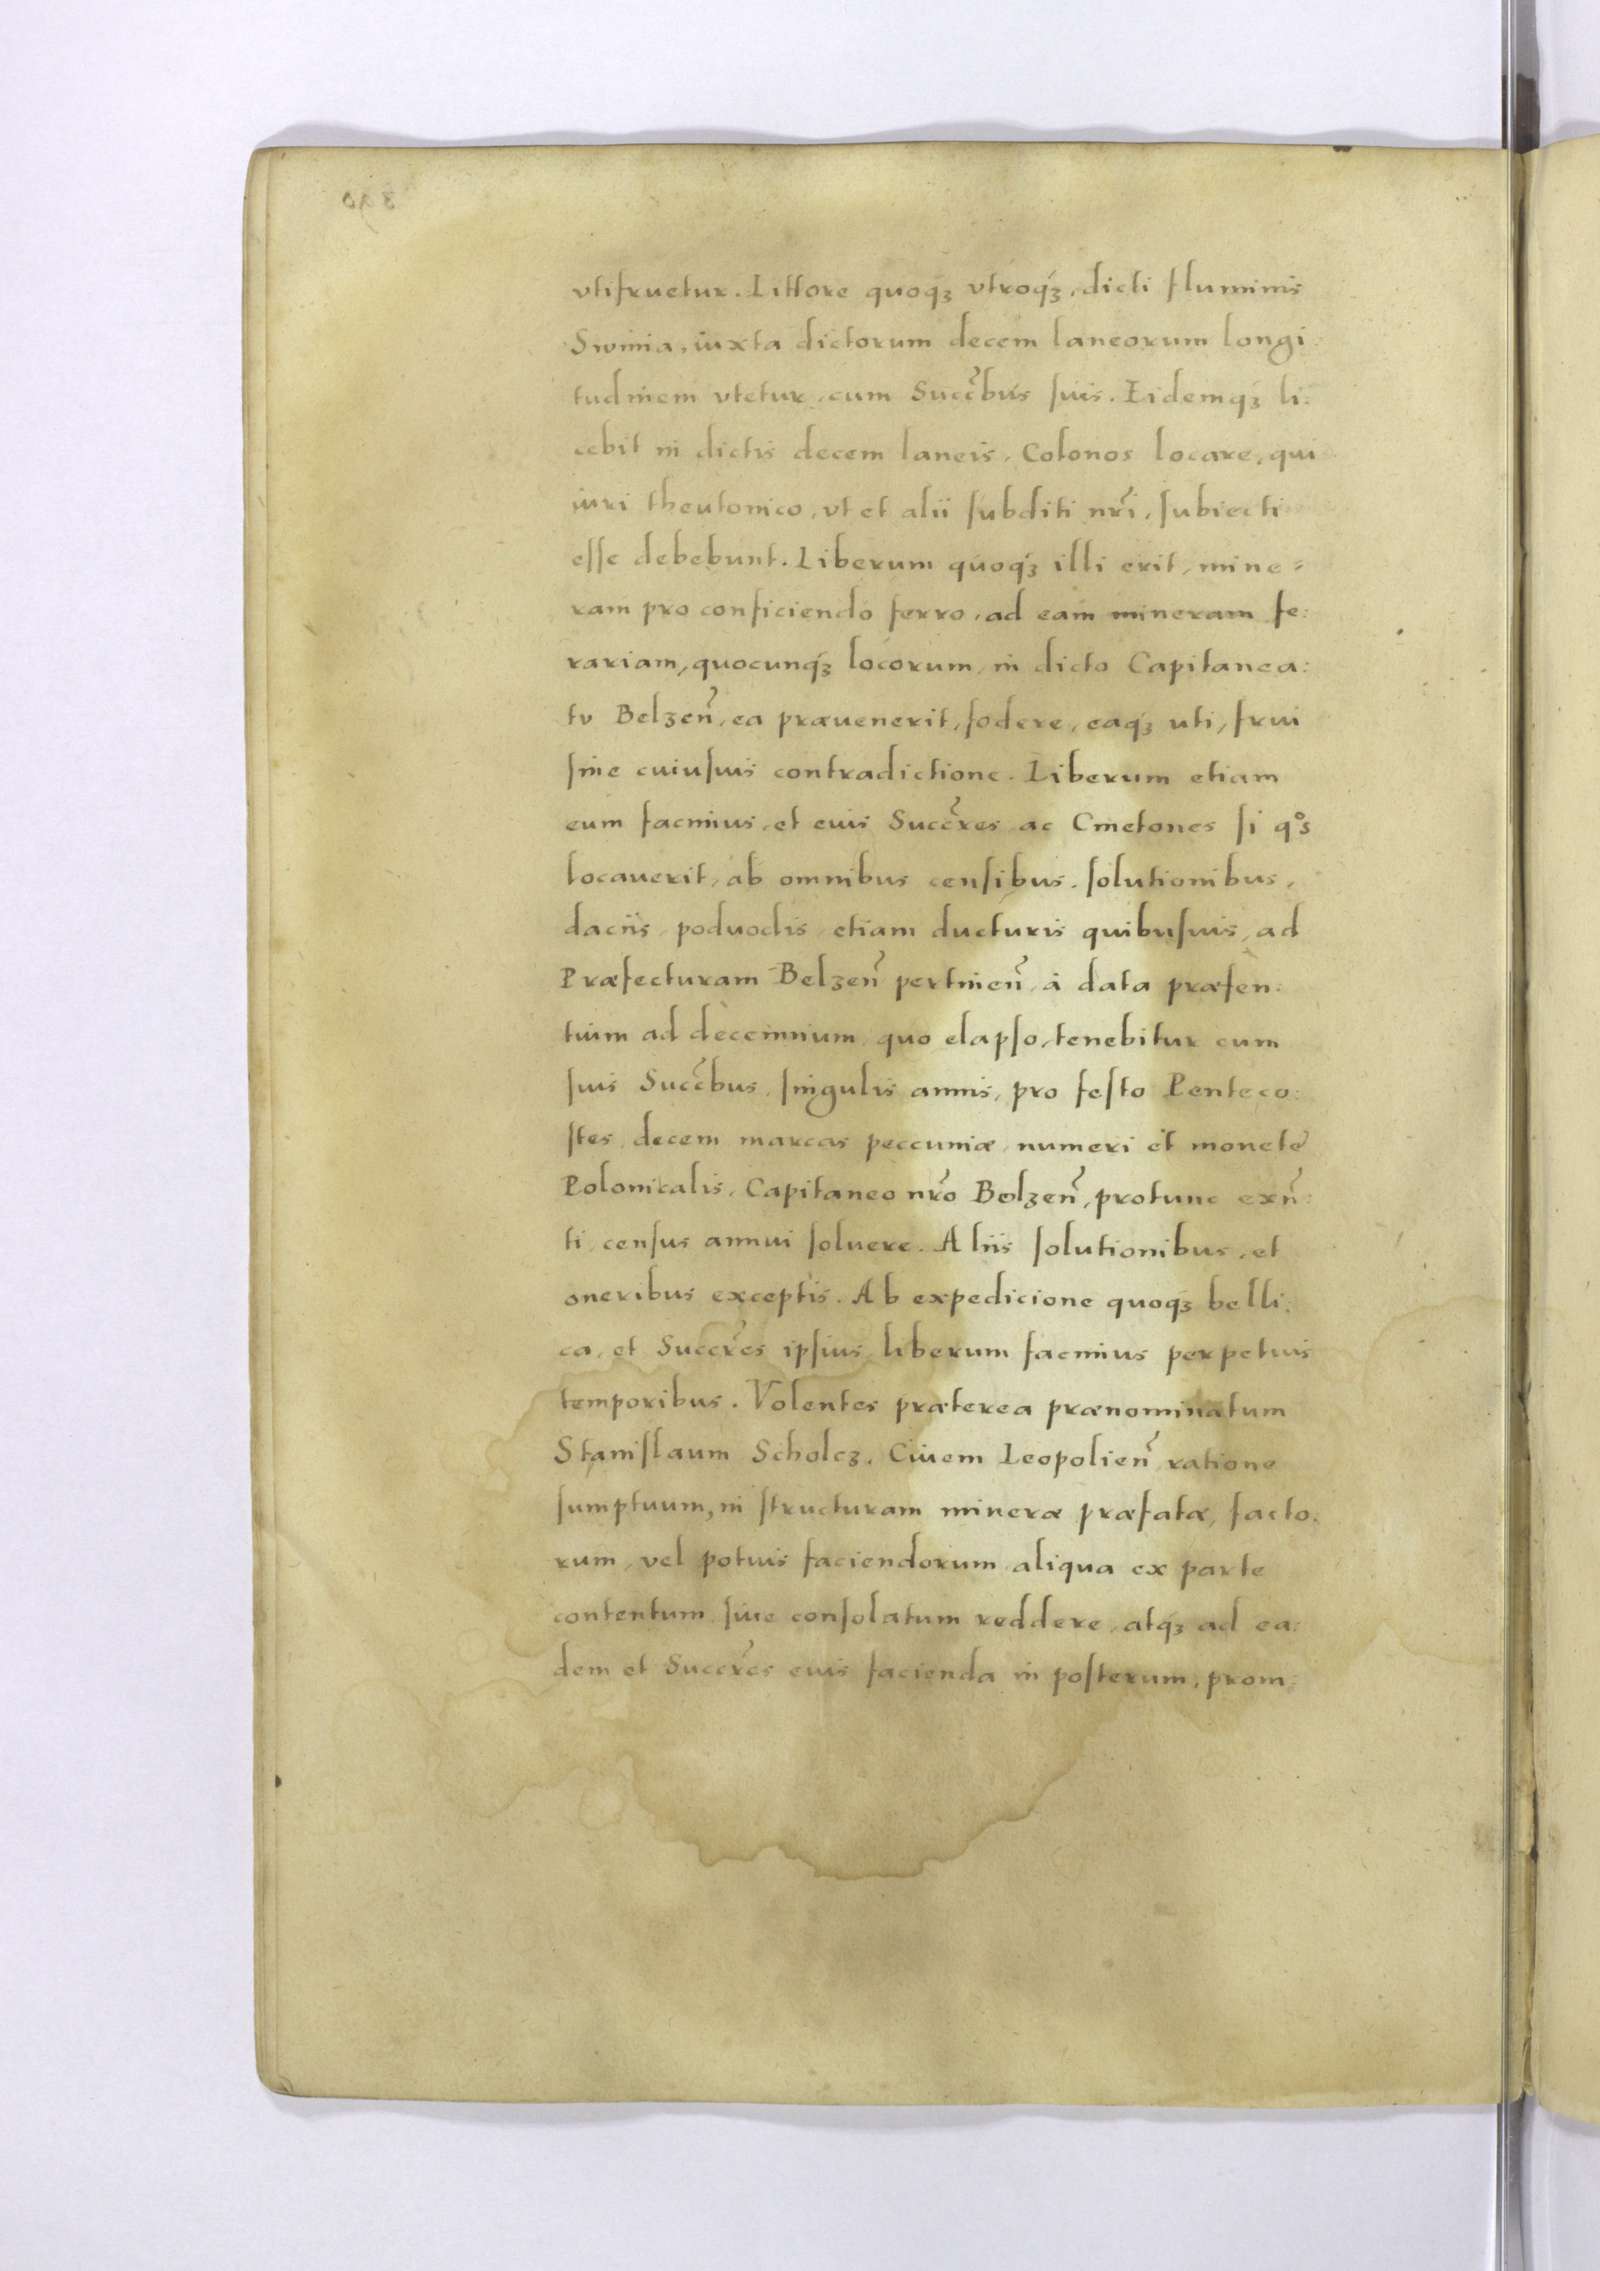 vtifruetur. Littore quoqȝ vtroqȝ, dicti fluminis
Swinia, iuxta dictorum decem laneorum longi:
tudinem vtetur, cum Succ̃bus suis. Eidemqȝ li:
cebit in dictis decem laneis, Colonos locare, qui
iuri theutonico, vt et alii subditi nr̃i, subiecti
esse debebunt. Liberum quoqȝ illi erit, mine:
ram pro conficiendo ferro, ad eam mineram fe:
rariam, quocunqȝ locorum, in dicto Capitanea:
tv Belzeñ, ea præuenerit, fodere, eaqȝ uti, frui
sine cuiusuis contradictione. Liberum etiam
eum facimus, et eius Succr̃es ac Cmetones si qͦs
locauerit, ab omnibus censibus, solutionibus,
daciis, poduodis, etiam ducturis quibusuis, ad
Præfecturam Belzeñ pertineñ, à data præsen:
tium ad decennium, quo elapso, tenebitur cum
suis Succ̃bus, singulis annis, pro festo Penteco:
stes, decem marcas peccuniæ, numeri et monetę
Polonicalis, Capitaneo nr̃o Belzeñ, protunc exñ:
ti, census annui soluere. Aliis solutionibus, et
oneribus exceptis. Ab expedicione quoqȝ belli:
ca, et Succr̃es ipsius liberum facimus perpetuis
temporibus. Volentes præterea prænominatum
Stanislaum Scholcz, Ciuem Leopolieñ ratione
sumptuum, in structuram mineræ præfatæ, facto:
rum, vel potuis faciendorum aliqua ex parte
contentum, siue consolatum reddere, atqȝ ad ea:
dem et Succr̃es eius facienda in posterum, prom: